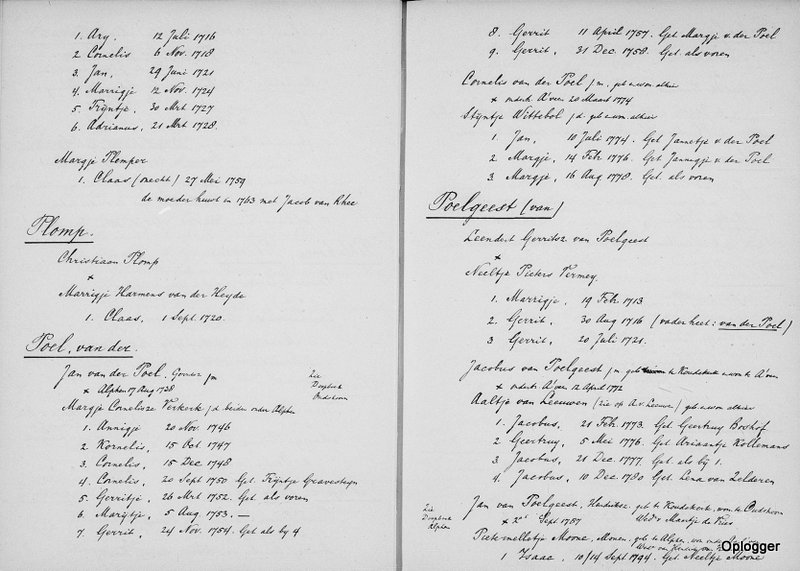 1. Ary, 12 Juli 1716
2 Cornelis 6 Nov. 1718
3. Jan, 29 Juni 1721
4. Marrigje 12 Nov. 1724
5. Trijntje, 30 Mrt 1727
6. Adrianus, 21 Mrt 1728.
Margje Plomper
1. Claas (onecht) 27 Mei 1759
de moeder huwt in 1763 met Jacob van Rhee
Plomp.
Christiaan Plomp
x
Marrigje Harmens van der Heyde
1. Claas, 1 Sept. 1720.
Poel, van der.
Jan van der Poel. jm
x Alphen 17 Aug 1738
Zie Doopboek Oudshoorn
Margje Cornelisse Verkerk jd. beiden onder Alphen
1. Annigje 20 Nov. 1746
2. Kornelis, 15 Oct. 1747
3. Cornelis, 15 Dec 1748
4. Cornelis, 20 Sept 1750 Get. Trijntje Gravesteyn
5. Gerritje, 26 Mrt 1752. Get als voren
6. Marijtje, 5 Aug 1753. —
7. Gerrit, 24 Nov. 1754. Get als bij 4
8. Gerrit 11 April 1757. Get Margje v. der Poel
9. Gerrit, 31 Dec. 1758. Get. als voren
Cornelis van der Poel jm. geb. en won. alhier
x ondertr. A'veen 20 Maart 1774
Stijntje Wittebol jd. geb. en won. alhier
1. Jan, 10 Juli 1774. Get Jannetje v. der Poel
2. Margje, 14 Feb. 1776. Get Jannigje v. der Poel
3. Margje, 16 Aug 1778. Get. als voren
Poelgeest (van)
Leendert Gerritsz. van Poelgeest
x
Neeltje Pieters Vermey.
1. Marrigje, 19 Feb. 1713.
2. Gerrit, 30 Aug 1716 (vader heet: van der Poel)
3 Gerrit, 20 Juli 1721.
Jacobus van Poelgeest jm geb te Koudekerk en won te A'veen
x ondertr. A'veen 12 April 1772
Aaltje van Leeuwen (zie op A.v. Leeuwen) geb. en won. alhier
1. Jacobus, 21 Feb. 1773. Get Geertruy Boshof
2. Geertruy, 5 Mei 1776. Get Ariaantje Kollemans
3. Jacobus, 21 Dec. 1777. Get. als bij 1.
4. Jacobus, 10 Dec. 1780 Get. Lena van Zelderen
Zie Doopboek Alphen
Jan van Poelgeest, Hendriksz. geb te Koudekerk, won. te Oudshoorn
x Sept 1757 Wedr Maartje de Vries
Pietermelletje Moone, geb te Alphen,
1 Isaac, 10/14 Sept 1794. Get Neeltje Moone
Oplogger